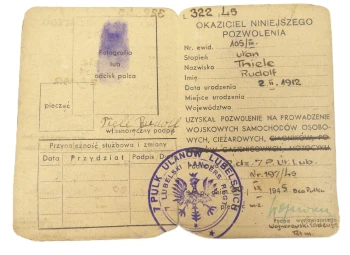 Fotografia
lub
odcisk palca
pieczęć
własnoręczny podpis
Przynależność służbowa i zmiany
Data
Przydział
Podpis
322/45
OKAZICIEL NINIEJSZEGO
POZWOLENIA
Nr. ewid. 105/III.
Stopień ułan
Nazwisko Thiele
Imię Rudolf
Data urodzenia 2.II.1912
Miejsce urodzenia
Województwo
UZYSKAŁ POZWOLENIE NA PROWADZENIE
WOJSKOWYCH SAMOCHODÓW OSOBO-
WYCH, CIĘŻAROWYCH,
7 P. Uł. Lub.
Nr. 197/45
1945
7 PUŁK UŁANÓW LUBELSKICH
7 LUBELSKI LANCERS REGT